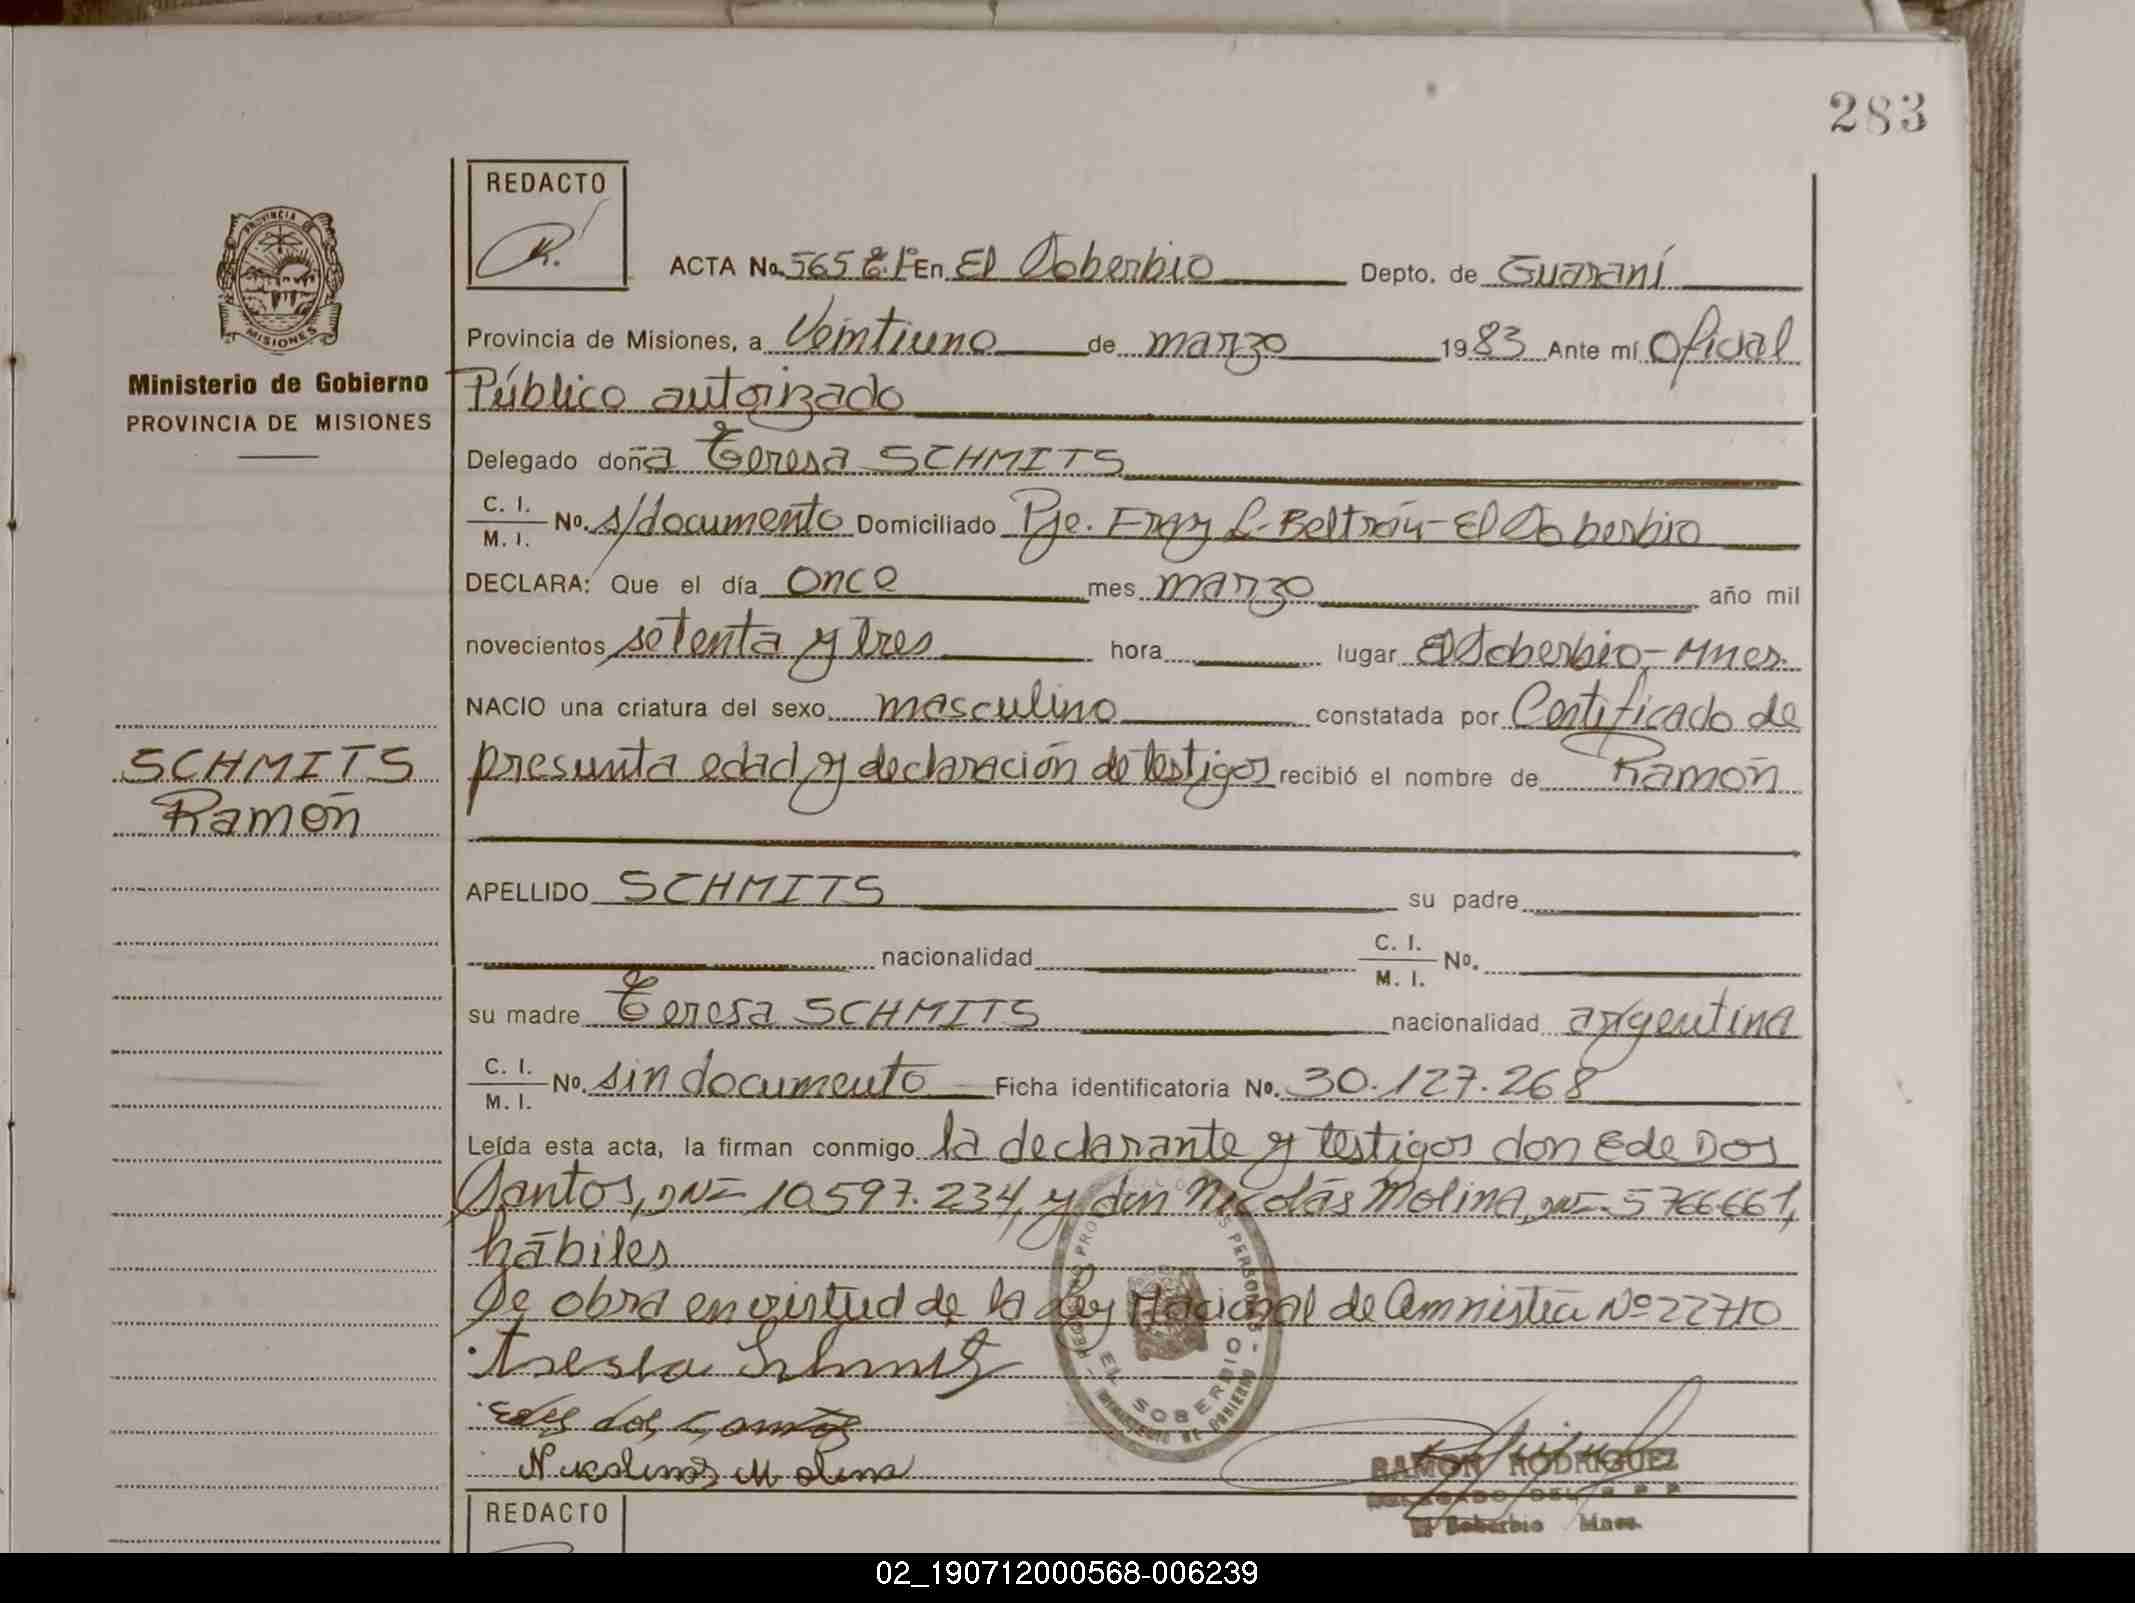 283
REDACTO
R.
PROVINCIA
MISIONES
Ministerio de Gobierno
PROVINCIA DE MISIONES
ACTA No. 565 En El Soberbio Depto. de Guaraní
Provincia de Misiones, a Veintiuno de marzo 1983 Ante mí Oficial
Público autorizado
Delegado doña Teresa SCHMITS
C. I.
M. I. No. s/documento Domiciliado Pje. Fray L. Beltrán - El Soberbio
DECLARA: Que el día Once mes marzo año mil
novecientos setenta y tres hora lugar El Soberbio - Mnes.
NACIO una criatura del sexo masculino constatada por Certificado de
SCHMITS
Ramón
presunta edad y declaración de testigos recibió el nombre de Ramón
APELLIDO SCHMITS su padre
nacionalidad C. I.
M. I. No.
su madre Teresa SCHMITS nacionalidad argentina
C. I.
M. I. No. sin documento Ficha identificatoria No. 30.127.268
Leída esta acta, la firman conmigo la declarante y testigos don Ede Dos
Santos, DNI- 10.597.234, y don Nicolás Molina, DNI- 5766661,
hábiles
Se obra en virtud de la Ley Nacional de Amnistía Nº 22710
EL SOBERBIO
MINISTERIO DE GOBIERNO
Nicolas Molina
RAMON RODRIGUEZ
El Soberbio Mnes.
REDACTO
02_190712000568-006239